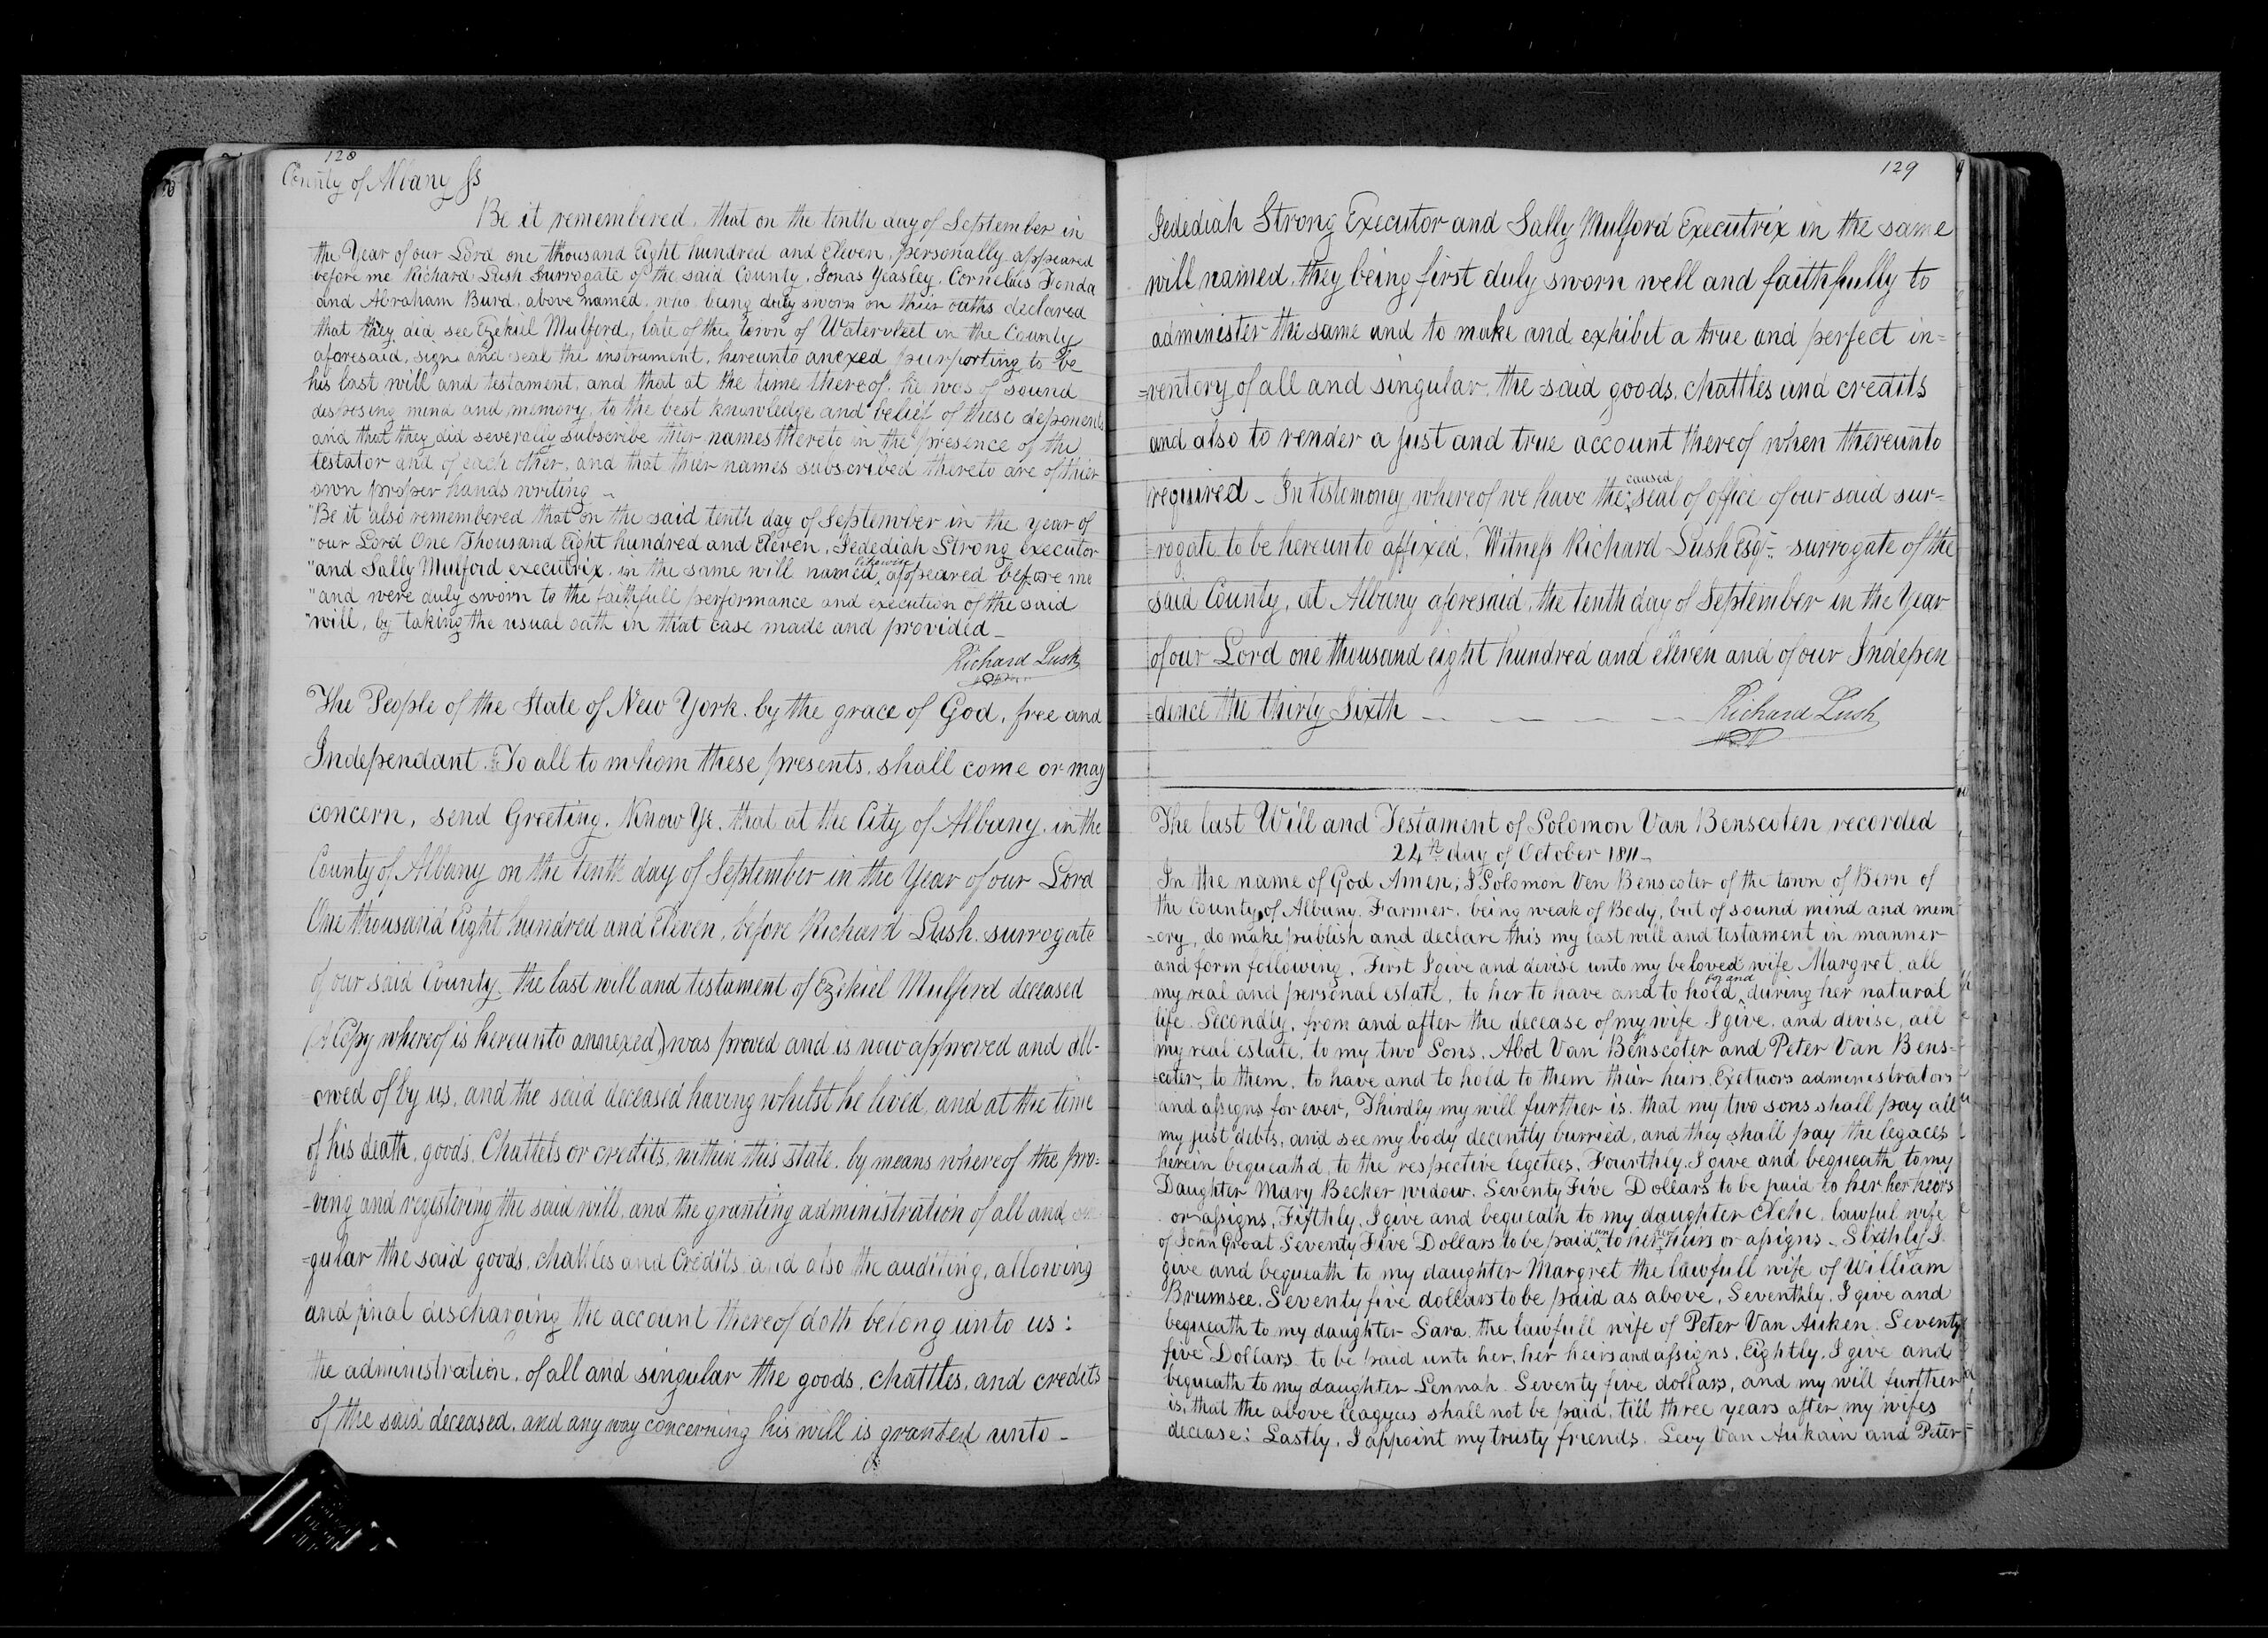 128
County of Albany ss
Be it remembered, that on the tenth day of September in
the Year of our Lord one thousand Eight hundred and Eleven, personally appeared
before me Richard Lush Surrogate of the said County, Jonas Yeasley, Cornelius Fonda
and Abraham Burd, above named, who being duly sworn on their oaths declared
that they did see Ezekiel Mulford, late of the town of Watervleet in the County
aforesaid, sign and seal the instrument, hereunto anexed purporting to be
his last will and testament, and that at the time thereof, he was of sound
disposing mind and memory, to the best knowledge and belief of these deponents
and that they did severally subscribe thier names thereto in the presence of the
testator and of each other, and that thier names subscribed thereto are of thier
own proper hands writing ~
"Be it also remembered that on the said tenth day of September in the year of
"our Lord One Thousand Eight hundred and Eleven, Jedediah Strong executor
"and Sally Mulford executrix, in the same will named, likewise appeared before me
"and were duly sworn to the faithfull performance and execution of the said
"will, by taking the usual oath in that case made and provided _
Richard Lush
The People of the State of New York, by the grace of God, free and
Independant. To all to whom these presents, shall come or may
concern, send Greeting. Know Ye, that at the City of Albany, in the
County of Albany on the tenth day of September in the Year of our Lord
One thousand Eight hundred and Eleven, before Richard Lush, surrogate
of our said County, the last will and testament of Ezikiel Mulford deceased
(A Copy whereof is hereunto annexed) was proved and is now approved and all-
owed of by us, and the said deceased having whilst he lived, and at the time
of his death, goods, Chattels or credits, within this state, by means whereof the pro=
-ving and registering the said will, and the granting administration of all and
=gular the said goods, chattles and Credits and also the auditing, allowing
and final discharging the account thereof doth belong unto us:
the administration, of all and singular the goods, chattles, and credits
of the said deceased, and any way concerning his will is granted unto _
129
Jedediah Strong Executor and Sally Mulford Executrix in the same
will named, they being first duly sworn well and faithfully to
administer the same and to make and exhibit a true and perfect in=
=ventory of all and singular, the said goods, chattles and credits
and also to render a just and true account thereof when thereunto
required _ In testemoney whereof we have the caused seal of office of our said sur=
=rogate to be hereunto affixed, Witness Richard Lush Esqr. surrogate of the
said County, at Albany aforesaid, the tenth day of September in the Year
of our Lord one thousand eight hundred and eleven and of our Indepen
=dence the thirty Sixth _ _ _ _ _ Richard Lush
The last Will and Testament of Solomon Van Benscoten recorded
24th day of October 1811_
In the name of God Amen; I Solomon Ven Benscoter of the town of Bern of
the County of Albany, Farmer, being weak of Body, but of sound mind and mem
=ory, do make publish and declare this my last will and testament in manner
and form following, First I give and devise unto my beloved wife Margret, all
my real and personal estate, to her to have and to hold for and during her natural
life. Secondly, from and after the decease of my wife I give, and devise, all
my real estate, to my two Sons, Abot Van Benscoter and Peter Van Bens=
coter, to them, to have and to hold to them their heirs, Exetuors administrators
and assigns for ever, Thirdly my will further is, that my two sons shall pay all
my just debts, and see my body decently burried, and they shall pay the legaces
herein bequeathd, to the respective legetees, Fourthly I give and bequeath to my
Daughter Mary Becker widow, Seventy Five Dollars to be paid to her her heirs
or assigns, Fifthly, I give and bequeath to my daughter Elche, lawful wife
of John Groat Seventy Five Dollars to be paid un to her her heirs or assigns _ Sixthly I
give and bequeath to my daughter Margret the lawfull wife of William
Brumsee, Seventy five dollars to be paid as above, Seventhly, I give and
bequeath to my daughter Sara, the lawfull wife of Peter Van Auken Seventy
five Dollars to be paid unto her, her heirs and assigns, Eightly, I give and
bequeath to my daughter Lennah Seventy five dollars, and my will further
is, that the above leagyes shall not be paid, till three years after my wifes
decease: Lastly, I appoint my trusty friends, Levy Van Aukain and Peter